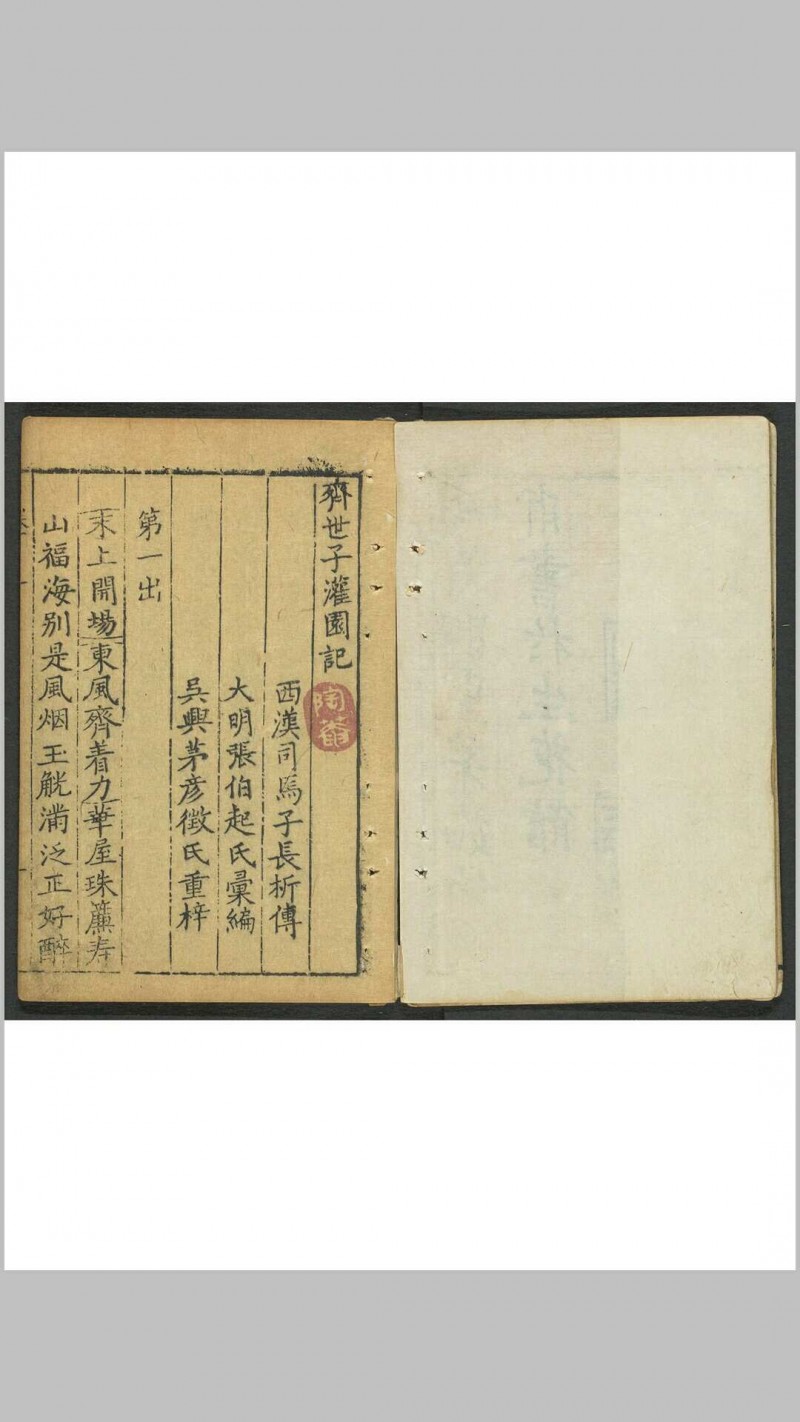 齊世子灌園記
陶盦
西漢司馬子長析傳
大明張伯起氏彙編
吳興茅彦徵氏重梓
第一出
末上開場東風齊着力華屋珠簾寿
山福海别是風烟玉觥滿泛正好醉